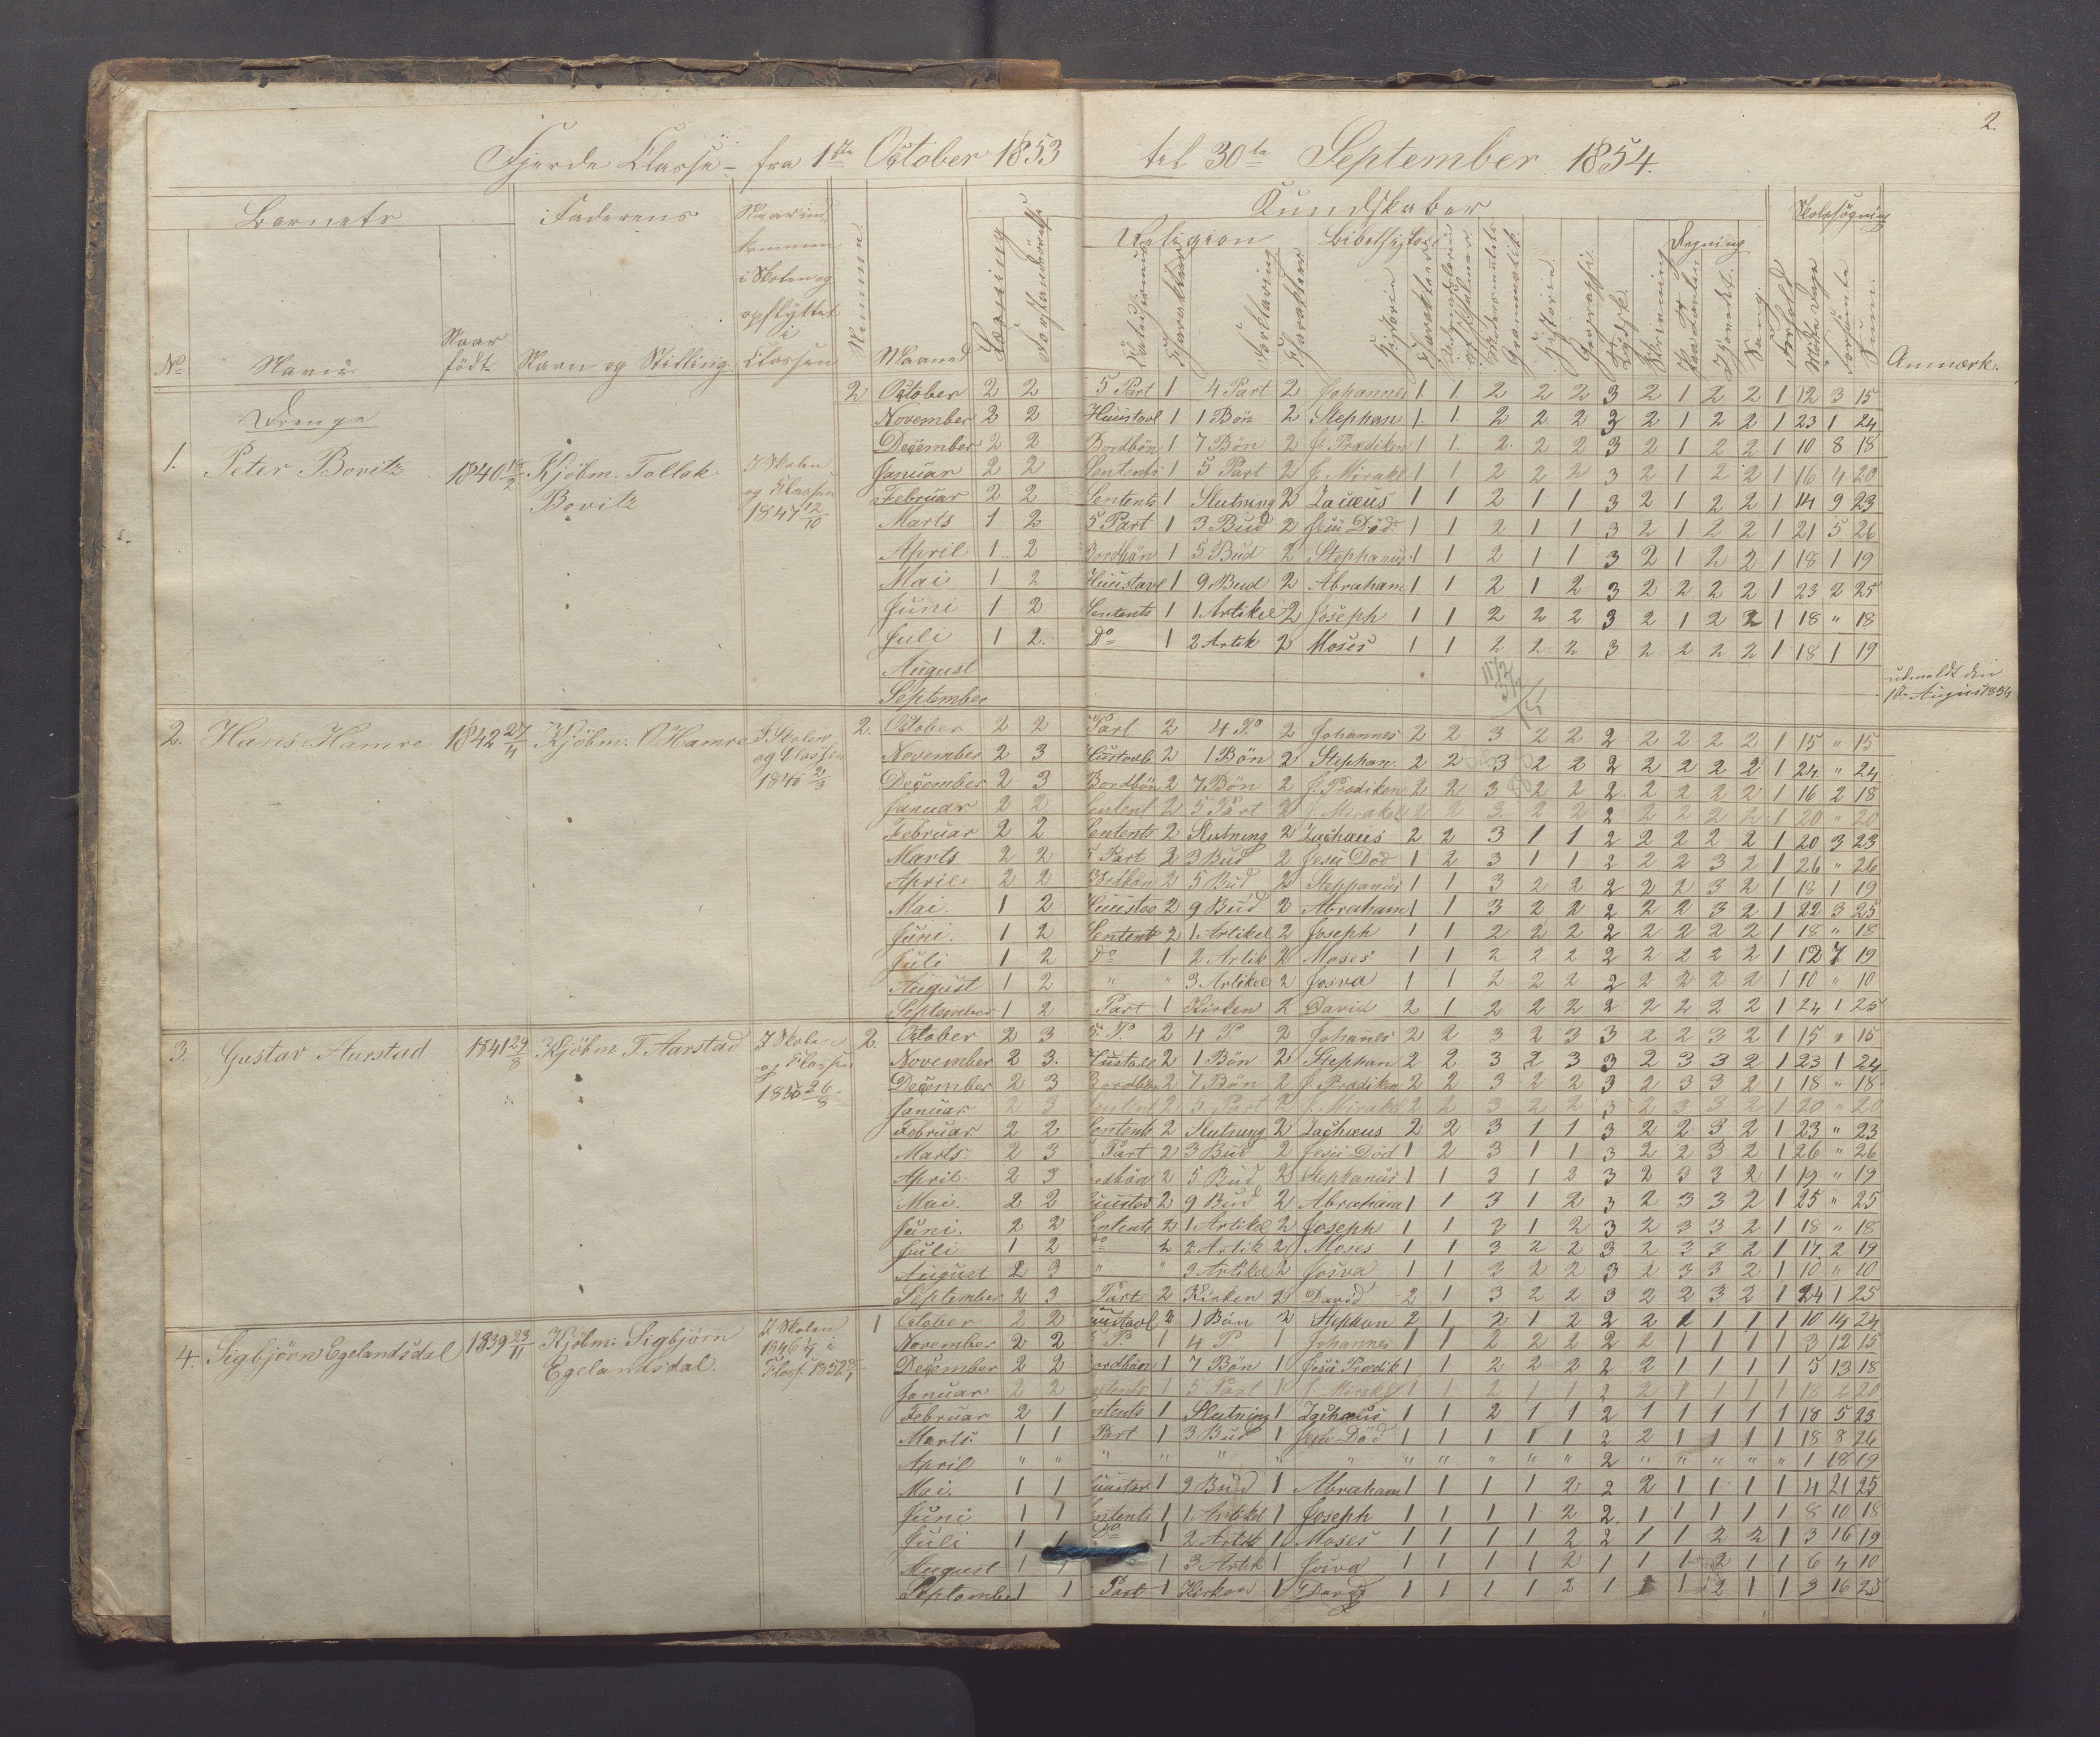 2.
Fjerde Classe - fra 1ste October 1853 til 30te September 1854.
Barnets Faderens Kundskaber Skolesøgning
Religion Bibelhistorie Regning
No Navn Naar født Navn og Stilling Classen Nummer Maaned Læsning Forklaring Charakter Historie Charakter Grammatik Historie Geographi Tydsk Skrivning Sang Forhold Forsømte Sum Anmærk.
Drenge
2 October 2 2 5 Part 1 4 Part 2 Johannes 1 1 2 2 2 3 2 1 2 2 1 12 3 15
November 2 2 Huustavl 1 1 Bön 2 Stephan 1 1 2 2 2 3 2 1 2 2 1 23 1 24
December 2 2 Bordbön 1 7 Bön 2 J. Prædiken 1 1 2 2 2 3 2 1 2 2 1 10 8 18
1. Peter Bovitz 1840 Kjöbm. Tollak Bovitz I Skolen og Classen 1847 12/10
Januar 2 2 Sentents 1 5 Part 2 J. Mirakl 1 1 2 2 2 3 2 1 2 2 1 16 4 20
Februar 2 2 Sentents 1 Slutning 2 Zacæus 1 1 2 1 1 3 2 1 2 2 1 14 9 23
Marts 1 2 5 Part 1 3 Bud 2 Jesu Död 1 1 2 1 1 3 2 1 2 2 1 21 5 26
April 1 2 Bordbön 1 5 Bud 2 Stephanus 1 1 2 1 1 3 2 1 2 2 1 18 1 19
Mai 1 2 Huustavl 1 9 Bud 2 Abraham 1 1 2 1 2 3 2 2 2 2 1 23 2 25
Juni 1 2 Sentents 1 1 Artikel 2 Joseph 1 1 2 2 2 3 2 1 2 2 1 18 " 18
Juli 1 2. Do 1 2 Artik 2 Moses 1 1 2 2 2 3 2 2 2 2 1 18 1 19
August
September
udmeldt den
1ste August 1854
2. Hans Hamre 1842 27/11 Kjöbm. O Hamre I Skolen og Classen 2/3
2. October 2 2 Part 2 4 P. 2 Johannes 2 2 3 2 2 2 2 2 2 2 1 15 " 15
November 2 3 Hustavle 2 1 Bön 2 Stephan. 2 2 3 2 2 2 2 2 2 2 1 24 " 24
December 2 3 Bordbön 2 7 Bön 2 J. Prædiken 2 2 3 2 2 2 2 2 2 2 1 16 2 18
Januar 2 2 Sentent 2 5 Part 2 J. Mirakel 2 2 3 2 2 2 2 2 2 2 1 20 " 20
Februar 2 2 Sentents 2 Slutning 2 Zachæus 2 2 3 1 1 2 2 2 2 2 1 20 3 23
Marts 2 2 5 Part 2 3 Bud 2 Jesu Död 1 2 3 1 1 2 2 2 3 2 1 26 " 26
April 2 2 Bordbön 2 5 Bud 2 Steppanus 1 1 3 2 2 2 2 2 3 2 1 18 1 19
Mai. 1 2 Huustav 2 9 Bud 2 Abraham 1 1 3 2 2 2 2 2 3 2 1 22 3 25
Juni. 1 2 Sentent 2 1 Artikel 2 Joseph 1 1 2 2 2 2 2 2 2 2 1 18 " 18
Juli 1 2 Do 1 2 Artik 2 Moses 1 1 2 2 2 2 2 2 2 2 1 12 7 19
August 1 2 " " 3 Artikel 2 Josva 1 1 2 2 2 2 2 2 2 2 1 10 " 10
September 1 2 Part 1 Kirken 2 David 2 1 2 2 2 2 2 2 2 2 1 24 1 25
3. Gustav Aarstad 1841 29/8 Kjöbm T. Aarstad I Skolen og Classen 1850 26/8
2. October 2 3 5. P. 2 4 P 2 Johanes 2 2 3 2 3 3 2 2 3 2 1 15 " 15
November 2 3. Hustavl 2 1 Bön 2 Stephan 2 2 3 2 3 3 2 3 3 2 1 23 1 24
December 2 3 Bordbön 2 7 Bön 2 J. Prædiken 2 2 3 2 2 3 2 3 3 2 1 18 " 18
Januar 2 3 Sentent 2 5 Part 2 J. Mirakel 2 2 3 2 2 3 2 3 3 2 1 20 " 20
Februar 2 2 Sentents 2 Slutning 2 Zachæus 2 2 3 1 1 3 2 2 3 2 1 23 " 23
Marts. 2 3 Part 2 3 Bud 2 Jesu Död 1 2 3 1 1 3 2 2 3 2 1 26 " 26
April 2 3 ordbön 2 5 Bud 2 Stephanus 1 1 3 1 2 3 2 3 3 2 1 19 " 19
Mai. 2 2 uustav 2 9 Bud 2 Abraham 1 1 3 1 2 3 2 3 3 2 1 25 " 25
Juni. 2 2 entents 2 1 Artikel 2 Joseph 1 1 3 1 2 3 2 3 3 2 1 18 " 18
Juli 1 2 Do 2 2 Artik 2 Moses 1 1 3 2 2 3 2 3 3 2 1 17 2 19
August 2 3 " " 3 Artikel 2 Josva 1 1 3 2 2 3 2 3 3 2 1 10 " 10
September 2 3 Part 2 Kirken 2 David 2 1 3 2 2 3 2 2 3 2 1 24 1 25
4. Sigbjörn Egelandsdal 1839 23/11 Kjöbm. Sigbjörn Egelandsdal. I Skolen 1846 i Class. 1852
1 October 2 2 uustavl 2 1 Bön 2 Stephan 2 1 2 1 2 2 2 1 1 1 1 10 14 24
November 2 2 5 P. 1 4 P. 1 Johannes 1 1 2 2 2 2 2 1 1 1 1 3 12 15
December 2 2 ordbön 1 7 Bön 1 Jesu Prædik 1 1 2 2 2 2 2 1 1 1 1 5 13 18
Januar 2 2 ntents 1 5 Part 1 J. Mirakel 1 1 2 1 1 2 2 1 1 1 1 18 2 20
Februar 2 1 ntents 1 Slutning 1 Zachæus 1 1 2 1 1 2 1 1 1 1 1 18 5 23
Marts. 1 1 Part 1 3 Bud 1 Jesu Död 1 1 1 1 1 2 2 1 1 1 1 18 8 26
April " " " " " " " " " " " " 2 " " " " " 1 18 19
Mai. 1 1 uustav 1 9 Bud 1 Abraham 1 1 1 1 2 2 2 1 1 1 1 4 21 25
Juni 1 1 ntents 1 1 Artikel 1 Joseph 1 1 1 1 2 2 1 1 1 1 1 8 10 18
Juli 1 1 Do 1 2 Artik 1 Moses 1 1 1 1 2 2 1 1 2 2 1 3 16 19
August 1 1 1 3 Artik 1 Josva 1 1 1 1 2 1 1 1 2 1 1 6 4 10
September 1 1 Part 1 Kirken 1 David 1 1 1 1 2 1 1 1 2 1 1 9 16 25